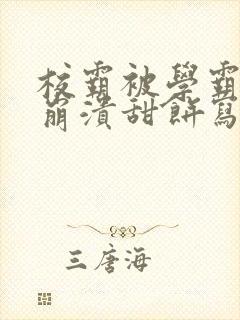 校霸被學霸
崩潰甜餅寫
三唐海